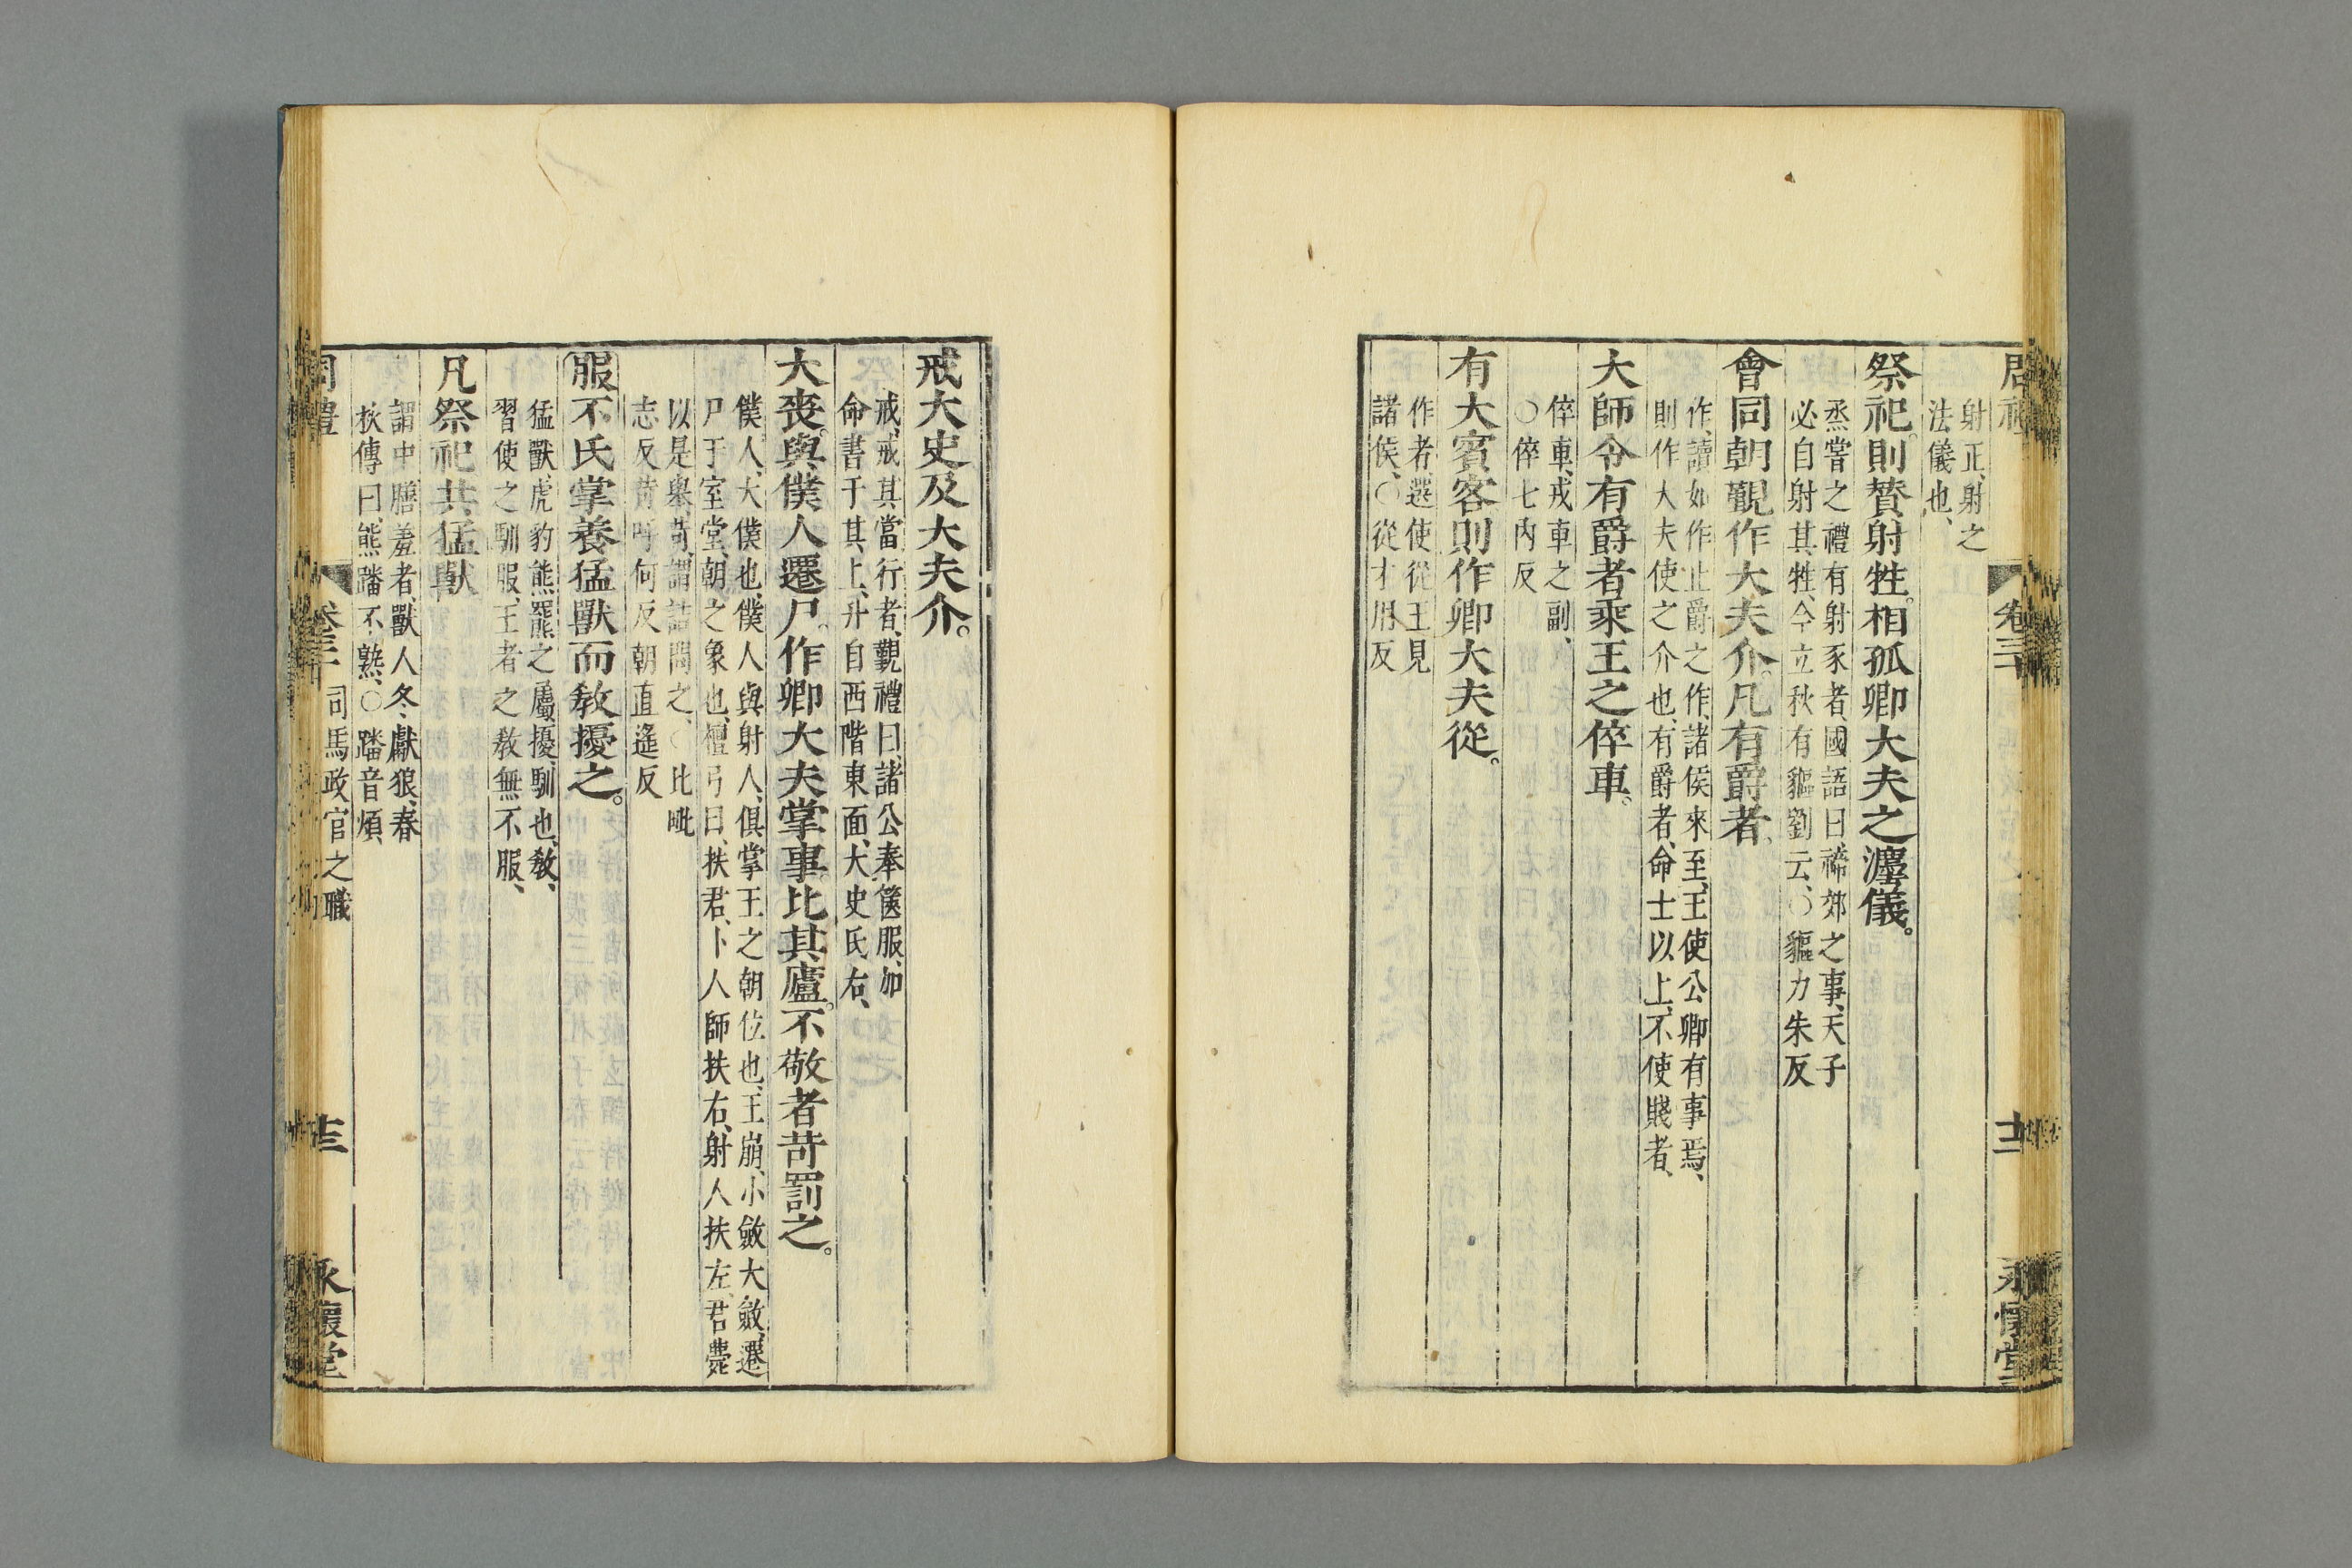 射正、射之
法儀也、
祭祀。則贊射牲。相孤卿大夫之灋儀。
烝嘗之禮有射豕者、國語曰、禘郊之事、天子
必自射其牲、今立秋有貙劉云、○貙力朱反
會同朝覲作大夫介。凡有爵者、
作、讀如作止爵之作、諸侯來至、王使公卿有事焉、
則作大夫使之介也、有爵者、命士以上、不使賤者、
大師令有爵者乘王之倅車。
倅車、戎車之副、
○倅七内反
有大賓客則作卿大夫從。
作者、選使從王見
諸侯、○從才用反
卷三十
十二
永懷堂
戒大史及大夫介。
戒、戒其當行者、覲禮曰、諸公奉篋服、加
命書于其上、升自西階東面、大史氏右、
大喪。與僕人遷尸。作卿大夫掌事。比其廬。不敬者苛罰之。
僕人、大僕也、僕人與射人、俱掌王之朝位也、王崩、小斂大斂、遷
尸于室堂、朝之象也、檀弓曰、扶君、卜人師扶右、射人扶左、君薨
以是舉、苛、謂詰問之、○比毗
志反苛呼何反朝直遙反
服不氏掌養猛獸而教擾之。
猛獸、虎豹熊羆之屬、擾、馴也、教、
習使之馴服、王者之教無不服、
凡祭祀共猛獸
謂中膳羞者、獸人冬獻狼、春
秋傳曰、熊蹯不熟、○蹯音煩、
周禮
卷三十
司馬政官之職
十三
永懷堂